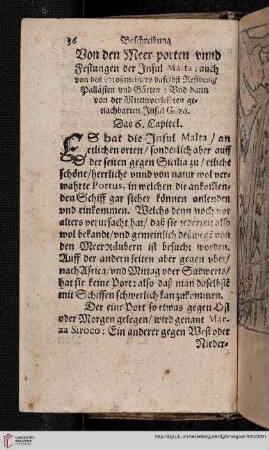 36 Beschreibung
Von den Meer porten vnnd
Festungen der Insul Malta: auch
von des daselbst Residentz/
Pallästen vnd Gärten: Vnd dann
von der ge-
nachbarten Insul Goza.
Das 6. Capitel.
ES hat die Insul Malta/ an
etlichen orten/ sonderlich aber auff
der seiten gegen Sicilia zu/ etliche
schöne/ herrliche vnnd von natur wol ver-
wahrte Portus, in welchen die ankommen-
den Schiff gar sicher können anlenden
vnd einkommen. Welchs denn noch vor
alters verursacht hat/ daß sie jederzeit also
wol bekandt/ vnd gemeinlich von
den Meerräubern ist besucht worden.
Auff der andern seiten aber gegen vber/
nach Africa/ vnd Mittag oder Sudwerts/
hat sie keine Port: also daß man daselbst
mit Schiffen schwerlich kan zukommen.
Der eine Port so etwas gegen Ost
oder Morgen gelegen/ wird genant Mar-
za Siroco: Ein anderer gegen West oder
Nieder-